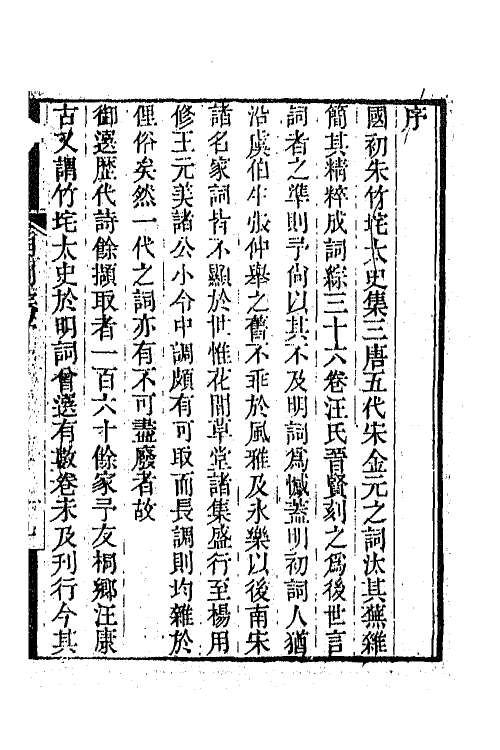 序
國初朱竹垞太史集三唐五代宋金元之詞汰其蕪雜
簡其精粹成詞綜三十六卷汪氏晉賢刻之爲後世言
詞者之準則予尚以其不及明詞爲憾蓋明初詞人猶
沿虞伯生張仲舉之舊不乖於風雅及永樂以後南宋
諸名家詞皆不顯於世惟花間草堂諸集盛行至楊用
修王元美諸公小令中調頗有可取而長調則均雜於
俚俗矣然一代之詞亦有不可盡廢者故
御選歴代詩餘擷取者一百六十餘家予友桐鄉汪康
古又謂竹垞太史於明詞曾選有數卷未及刊行今其